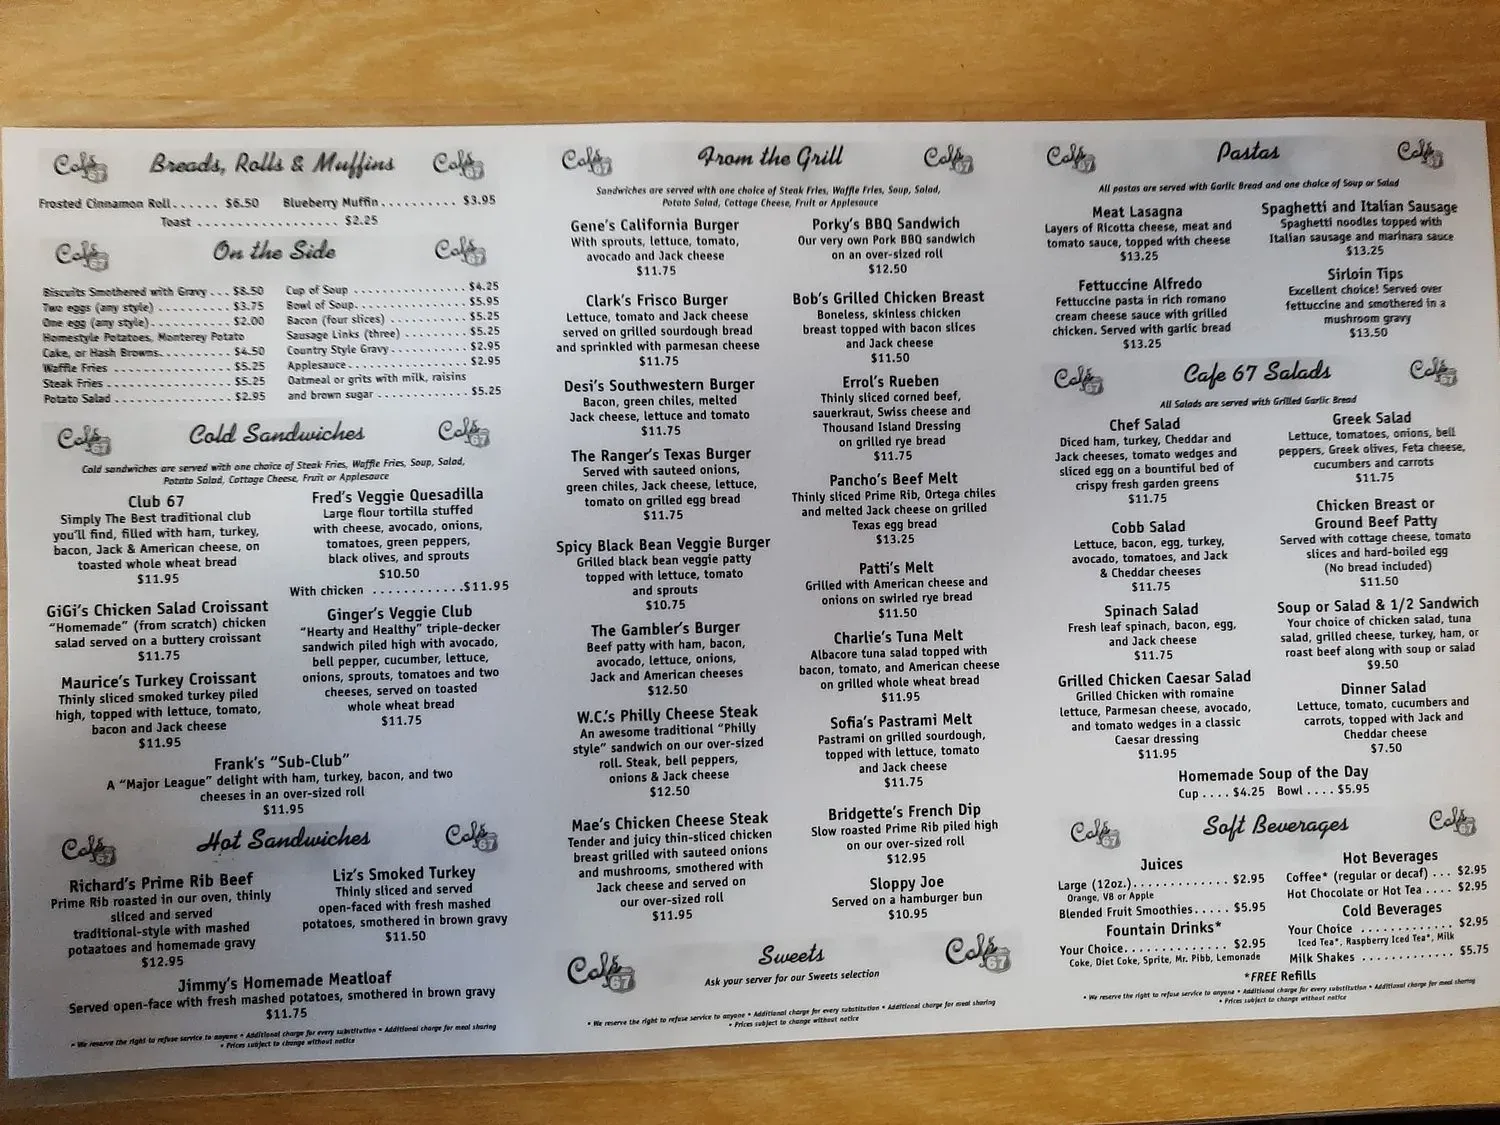 Café 67 Breads, Rolls & Muffins Café 67
Frosted Cinnamon Roll...... $6.50 Blueberry Muffin.......... $3.95
Toast .................. $2.25
Café 67 On the Side Café 67
Biscuits Smothered with Gravy ... $8.50
Two eggs (any style) ........... $3.75
One egg (any style)............ $2.00
Homestyle Potatoes, Monterey Potato
Cake, or Hash Browns........... $4.50
Waffle Fries .................. $5.25
Steak Fries ................... $5.25
Potato Salad .................. $2.95
Cup of Soup ................ $4.25
Bowl of Soup................ $5.95
Bacon (four slices) ............ $5.25
Sausage Links (three) .......... $5.25
Country Style Gravy........... $2.95
Applesauce................. $2.95
Oatmeal or grits with milk, raisins
and brown sugar ............. $5.25
Café 67 Cold Sandwiches Café 67
Cold sandwiches are served with one choice of Steak Fries, Waffle Fries, Soup, Salad,
Potato Salad, Cottage Cheese, Fruit or Applesauce
Club 67
Simply The Best traditional club
you'll find, filled with ham, turkey,
bacon, Jack & American cheese, on
toasted whole wheat bread
$11.95
GiGi's Chicken Salad Croissant
"Homemade" (from scratch) chicken
salad served on a buttery croissant
$11.75
Maurice's Turkey Croissant
Thinly sliced smoked turkey piled
high, topped with lettuce, tomato,
bacon and Jack cheese
$11.95
Fred's Veggie Quesadilla
Large flour tortilla stuffed
with cheese, avocado, onions,
tomatoes, green peppers,
black olives, and sprouts
$10.50
With chicken ............$11.95
Ginger's Veggie Club
"Hearty and Healthy" triple-decker
sandwich piled high with avocado,
bell pepper, cucumber, lettuce,
onions, sprouts, tomatoes and two
cheeses, served on toasted
whole wheat bread
$11.75
Frank's "Sub-Club"
A "Major League" delight with ham, turkey, bacon, and two
cheeses in an over-sized roll
$11.95
Café 67 Hot Sandwiches Café 67
Richard's Prime Rib Beef
Prime Rib roasted in our oven, thinly
sliced and served
traditional-style with mashed
potaatoes and homemade gravy
$12.95
Liz's Smoked Turkey
Thinly sliced and served
open-faced with fresh mashed
potatoes, smothered in brown gravy
$11.50
Jimmy's Homemade Meatloaf
Served open-face with fresh mashed potatoes, smothered in brown gravy
$11.75
• We reserve the right to refuse service to anyone • Additional charge for every substitution • Additional charge for meal sharing
• Prices subject to change without notice
Café 67 From the Grill Café 67
Sandwiches are served with one choice of Steak Fries, Waffle Fries, Soup, Salad,
Potato Salad, Cottage Cheese, Fruit or Applesauce
Gene's California Burger
With sprouts, lettuce, tomato,
avocado and Jack cheese
$11.75
Clark's Frisco Burger
Lettuce, tomato and Jack cheese
served on grilled sourdough bread
and sprinkled with parmesan cheese
$11.75
Desi's Southwestern Burger
Bacon, green chiles, melted
Jack cheese, lettuce and tomato
$11.75
The Ranger's Texas Burger
Served with sauteed onions,
green chiles, Jack cheese, lettuce,
tomato on grilled egg bread
$11.75
Spicy Black Bean Veggie Burger
Grilled black bean veggie patty
topped with lettuce, tomato
and sprouts
$10.75
The Gambler's Burger
Beef patty with ham, bacon,
avocado, lettuce, onions,
Jack and American cheeses
$12.50
W.C.'s Philly Cheese Steak
An awesome traditional "Philly
style" sandwich on our over-sized
roll. Steak, bell peppers,
onions & Jack cheese
$12.50
Mae's Chicken Cheese Steak
Tender and juicy thin-sliced chicken
breast grilled with sauteed onions
and mushrooms, smothered with
Jack cheese and served on
our over-sized roll
$11.95
Porky's BBQ Sandwich
Our very own Pork BBQ sandwich
on an over-sized roll
$12.50
Bob's Grilled Chicken Breast
Boneless, skinless chicken
breast topped with bacon slices
and Jack cheese
$11.50
Errol's Rueben
Thinly sliced corned beef,
sauerkraut, Swiss cheese and
Thousand Island Dressing
on grilled rye bread
$11.75
Pancho's Beef Melt
Thinly sliced Prime Rib, Ortega chiles
and melted Jack cheese on grilled
Texas egg bread
$13.25
Patti's Melt
Grilled with American cheese and
onions on swirled rye bread
$11.50
Charlie's Tuna Melt
Albacore tuna salad topped with
bacon, tomato, and American cheese
on grilled whole wheat bread
$11.95
Sofia's Pastrami Melt
Pastrami on grilled sourdough,
topped with lettuce, tomato
and Jack cheese
$11.75
Bridgette's French Dip
Slow roasted Prime Rib piled high
on our over-sized roll
$12.95
Sloppy Joe
Served on a hamburger bun
$10.95
Café 67 Sweets Café 67
Ask your server for our Sweets selection
• We reserve the right to refuse service to anyone • Additional charge for every substitution • Additional charge for meal sharing
• Prices subject to change without notice
Café 67 Pastas Café 67
All pastas are served with Garlic Bread and one choice of Soup or Salad
Meat Lasagna
Layers of Ricotta cheese, meat and
tomato sauce, topped with cheese
$13.25
Fettuccine Alfredo
Fettuccine pasta in rich romano
cream cheese sauce with grilled
chicken. Served with garlic bread
$13.25
Spaghetti and Italian Sausage
Spaghetti noodles topped with
Italian sausage and marinara sauce
$13.25
Sirloin Tips
Excellent choice! Served over
fettuccine and smothered in a
mushroom gravy
$13.50
Café 67 Cafe 67 Salads Café 67
All Salads are served with Grilled Garlic Bread
Chef Salad
Diced ham, turkey, Cheddar and
Jack cheeses, tomato wedges and
sliced egg on a bountiful bed of
crispy fresh garden greens
$11.75
Cobb Salad
Lettuce, bacon, egg, turkey,
avocado, tomatoes, and Jack
& Cheddar cheeses
$11.75
Spinach Salad
Fresh leaf spinach, bacon, egg,
and Jack cheese
$11.75
Grilled Chicken Caesar Salad
Grilled Chicken with romaine
lettuce, Parmesan cheese, avocado,
and tomato wedges in a classic
Caesar dressing
$11.95
Greek Salad
Lettuce, tomatoes, onions, bell
peppers, Greek olives, Feta cheese,
cucumbers and carrots
$11.75
Chicken Breast or
Ground Beef Patty
Served with cottage cheese, tomato
slices and hard-boiled egg
(No bread included)
$11.50
Soup or Salad & 1/2 Sandwich
Your choice of chicken salad, tuna
salad, grilled cheese, turkey, ham, or
roast beef along with soup or salad
$9.50
Dinner Salad
Lettuce, tomato, cucumbers and
carrots, topped with Jack and
Cheddar cheese
$7.50
Homemade Soup of the Day
Cup .... $4.25 Bowl .... $5.95
Café 67 Soft Beverages Café 67
Juices
Large (12oz.)............. $2.95
Orange, V8 or Apple
Blended Fruit Smoothies..... $5.95
Fountain Drinks*
Your Choice.............. $2.95
Coke, Diet Coke, Sprite, Mr. Pibb, Lemonade
Hot Beverages
Coffee* (regular or decaf) ... $2.95
Hot Chocolate or Hot Tea .... $2.95
Cold Beverages
Your Choice ............. $2.95
Iced Tea*, Raspberry Iced Tea*, Milk
Milk Shakes ............. $5.75
*FREE Refills
• We reserve the right to refuse service to anyone • Additional charge for every substitution • Additional charge for meal sharing
• Prices subject to change without notice